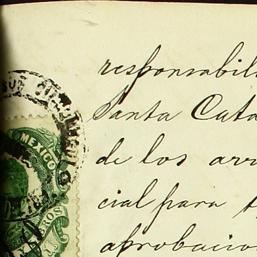 responsabil
Santa Cata
de los arr
cial para
aprobacio
MEXICO